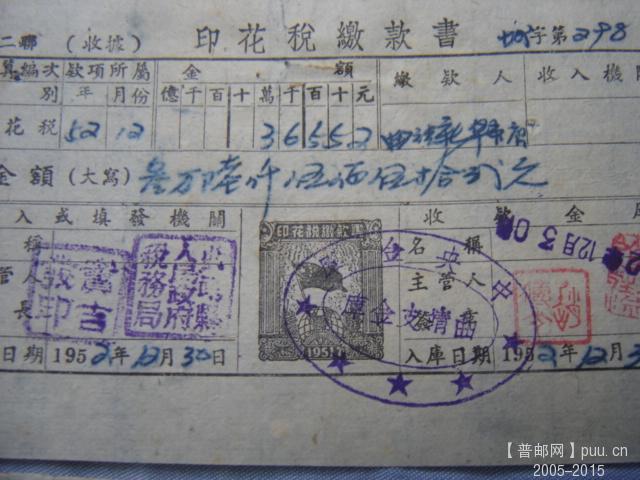 二聯 (收據) 印花稅繳款書 字第298
算編次 欵項所屬 金 額 繳欵人 收入機關
別 年 月份 億千百十萬千百十元
花稅 52 12 36552
金額(大寫) 叁万陸仟伍佰伍拾弍元
入或填發機關 印花稅繳款書 收欵金庫
稱 人民政府 稅務局 名稱 12月30
管人 主管人
長 印 曲靖支金庫
日期 1952年12月30日 1951 入庫日期 1952年12月3
【普邮网】puu.cn
2005-2015